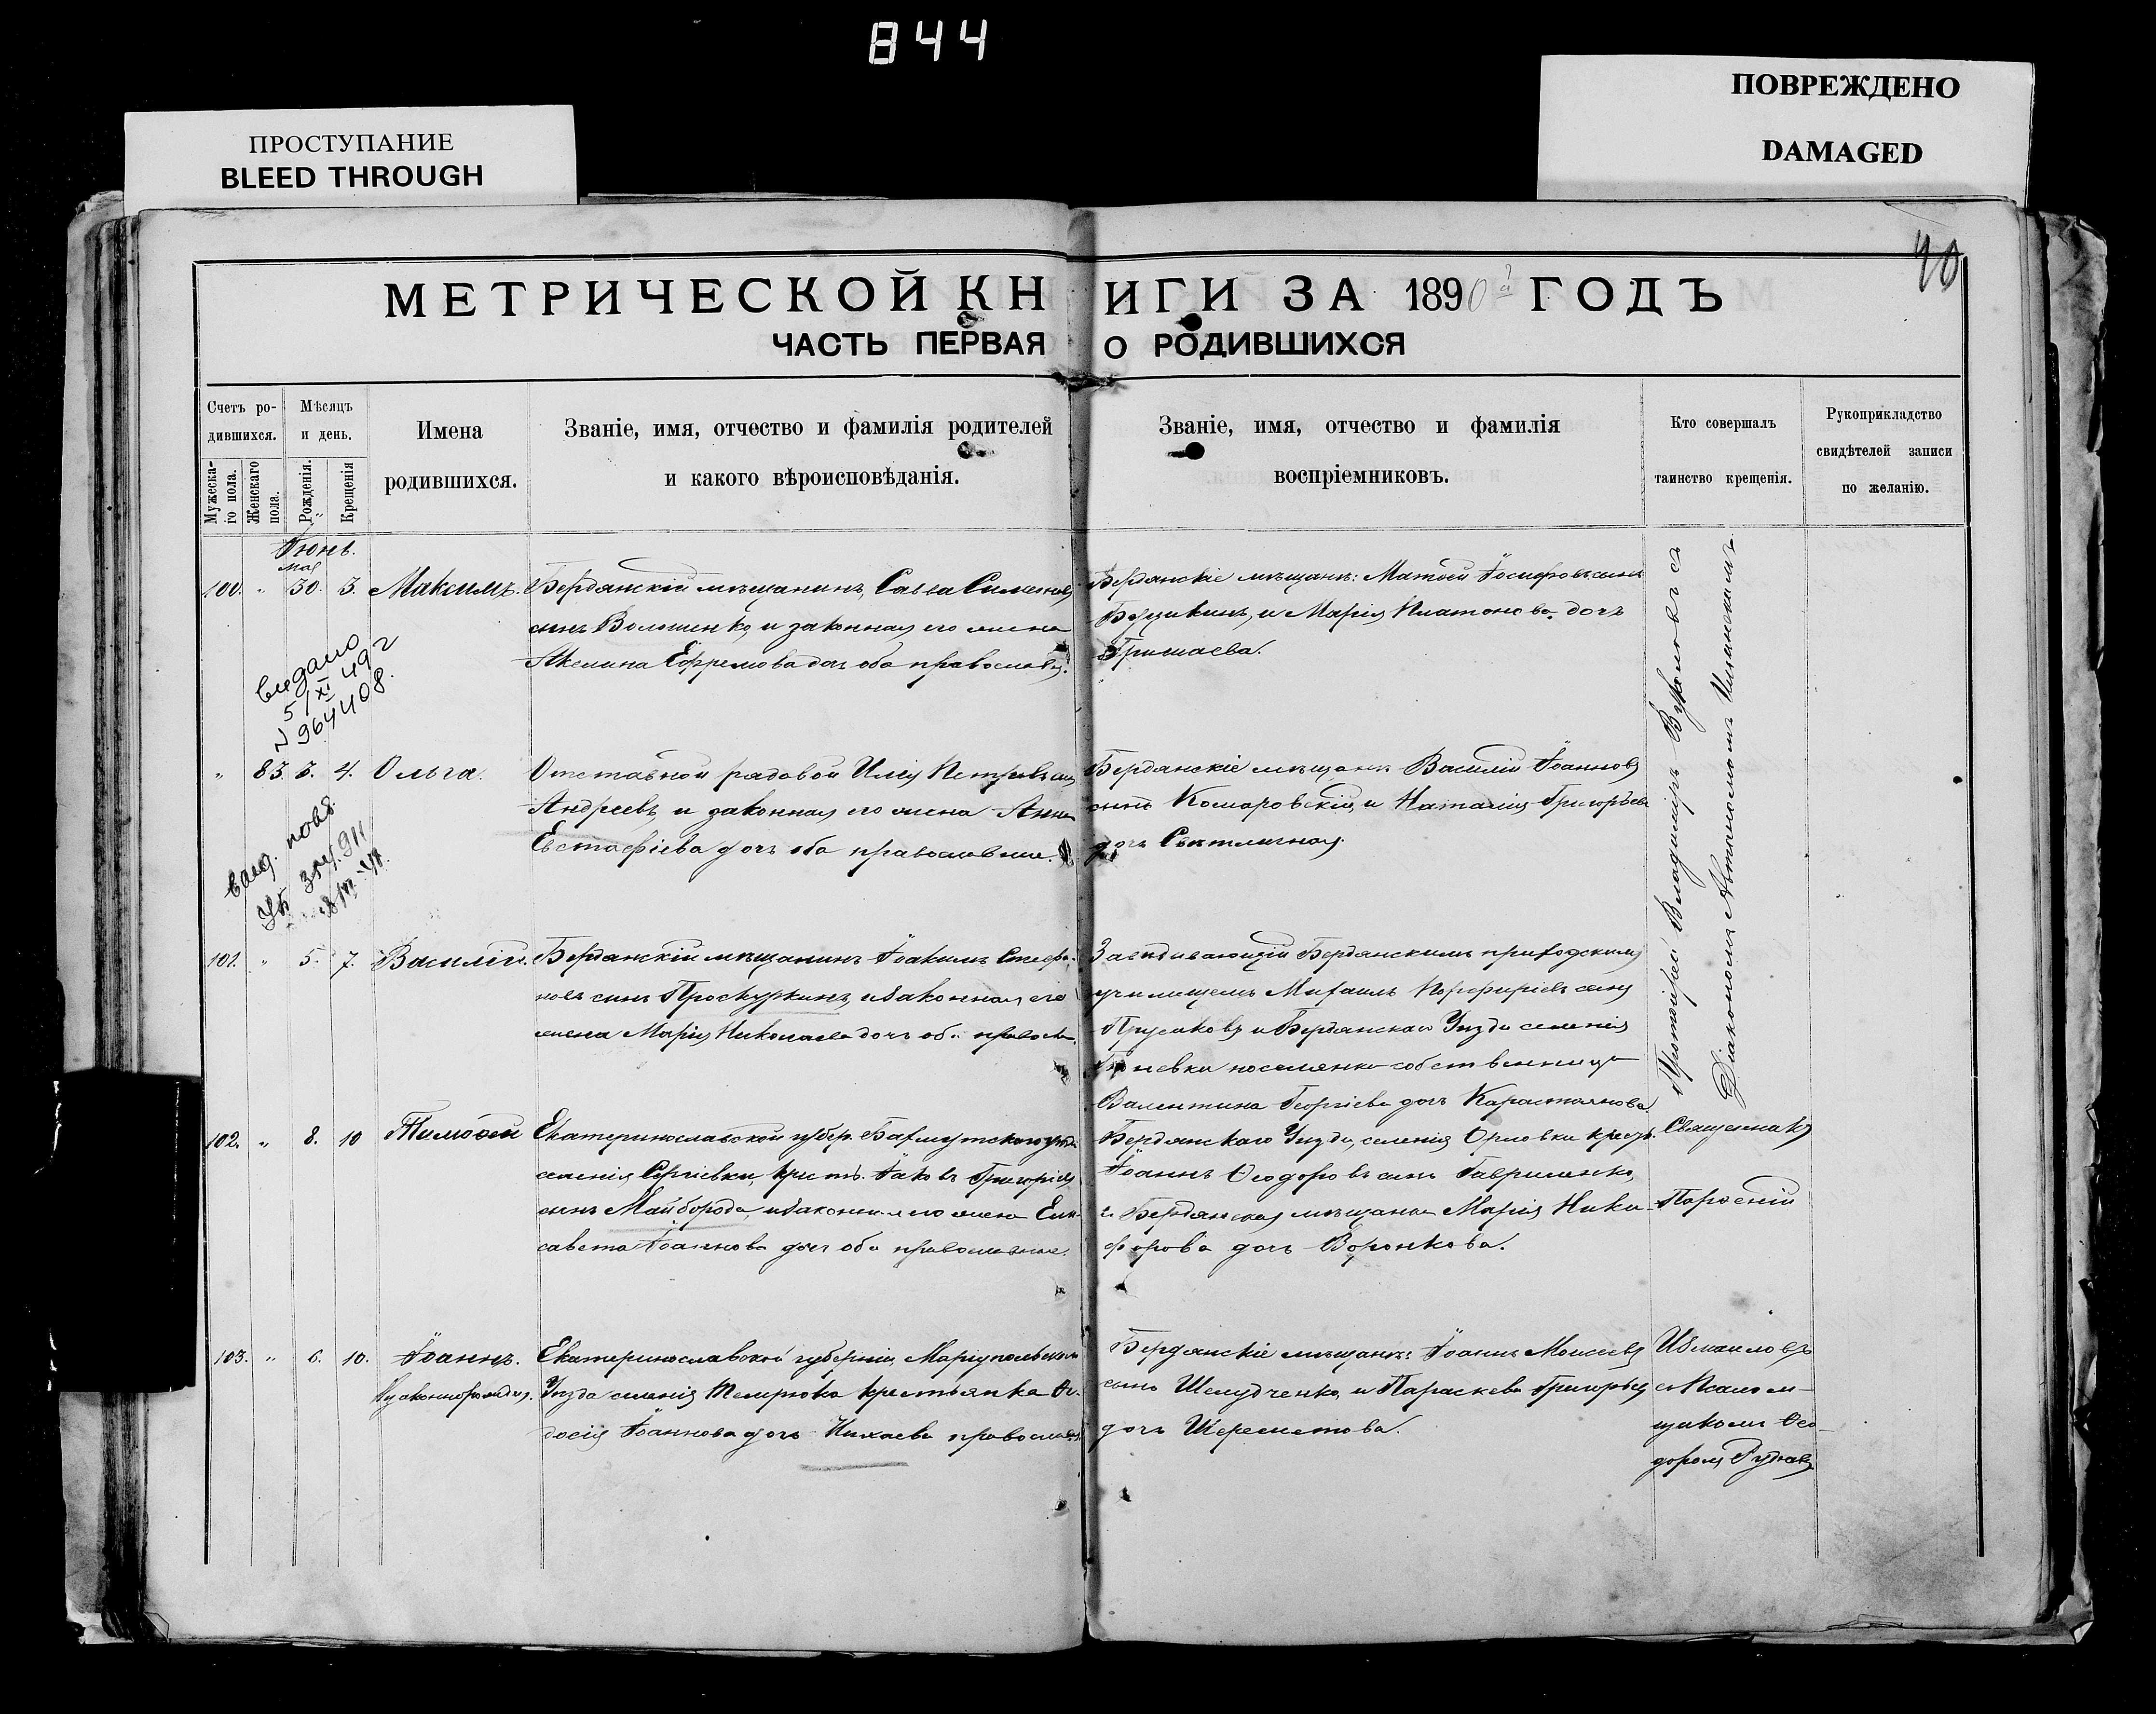 844
ПРОСТУПАНИЕ
BLEED THROUGH
ПОВРЕЖДЕНО
DAMAGED
40
МЕТРИЧЕСКОЙ КНИГИ ЗА 1890й ГОДЪ
ЧАСТЬ ПЕРВАЯ О РОДИВШИХСЯ
Счетъ ро-
дившихся.
Мужеска-
го пола.
Женскаго
пола.
Мѣсяцъ
и день.
Рожденія.
Крещенія
Имена
родившихся.
Званіе, имя, отчество и фамилія родителей
и какого вѣроисповѣданія.
Званіе, имя, отчество и фамилія
воспріемниковъ.
Кто совершалъ
таинство крещенія.
Рукоприкладство
свидѣтелей записи
по желанію.
Іюнь.
мая
100. " 30. 3. Максимъ.
Бердянскій мѣщанинъ, Савва Симеоновъ
сынъ Волошенко, и законная его жена
Акелина Ефремова дочь оба православн.
Бердянскіе мѣщане: Матѳей Іосифовъ сынъ
и Марія Платонова дочь
Гришаева.
видано
5/XI 49 г
N 964408.
" 83 3. 4. Ольга.
Отставной рядовой Илія Петровъ сынъ
Андреевъ, и законная его жена Анна
Евстафіева дочь оба православные.
Бердянскіе мѣщане Василій Іоанновъ
сынъ Комаровскій, и Наталія Григорьева
дочь Свѣтличная.
вид. повб.
101. " 5. 7. Василій.
Бердянскій мѣщанинъ Іоакимъ Стефа-
новъ сынъ Проскуркинъ, и законная его
жена Марія Николаева дочь оба правосл.
Завѣдывающій Бердянскимъ приходскимъ
училищемъ Михаилъ Порфиріевъ сынъ
Прусаковъ и Бердянскаго Уѣзда селенія
поселянка-собственница
Валентина Георгіева дочь Карастоянова.
Протоіерей Владимиръ
Діакономъ Автономомъ
102. " 8. 10 Тимоѳей
Екатеринославской губер. Бахмутскаго уѣзда
селенія Сергіевки, крест. Іаковъ Григоріевъ
сынъ Майборода, и законная его жена Ели-
савета Іоаннова дочь оба православные.
Бердянскаго Уѣзда, селенія Орловки крест.
Іоаннъ Ѳеодоровъ сынъ Гавриленко,
и Бердянская мѣщанка Марія Ники-
форова дочь Воронкова.
Священникъ
Парѳеній
103. " 6. 10. Іоаннъ.
Незаконнорожден.
Екатеринославской губерніи, Маріупольскаго
Уѣзда селенія Темрюка крестьянка Ѳе-
досія Іоаннова дочь Нихаева православн.
Бердянскіе мѣщане: Іоаннъ Моисеевъ
сынъ Шелудченко, и Параскева Григорьева
дочь Шереметова.
Измаиловъ
съ Псалом-
щикомъ Ѳео-
доромъ